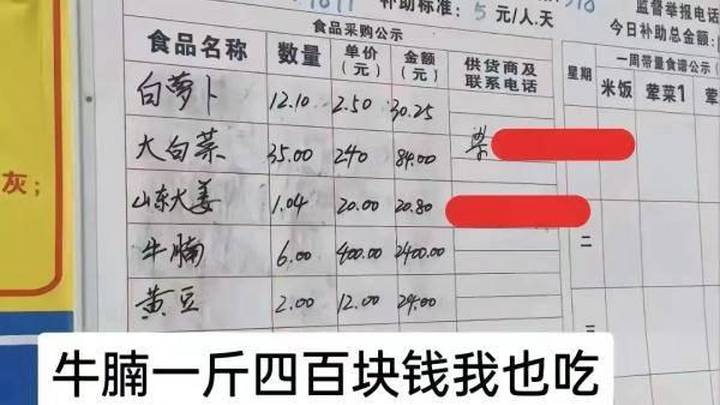 补助标准：5元/人.天
监督举报电话
今日补助总金额
食品采购公示
食品名称 数量 单价（元） 金额（元） 供货商及联系电话
白萝卜 12.10 2.50 30.25
大白菜 35.00 2.40 84.00
山东大姜 1.04 20.00 20.80
牛腩 6.00 400.00 2400.00
黄豆 2.00 12.00 24.00
星期 一周带量食谱公示
米饭 荤菜1 荤
二
三
灰；
牛腩一斤四百块钱我也吃